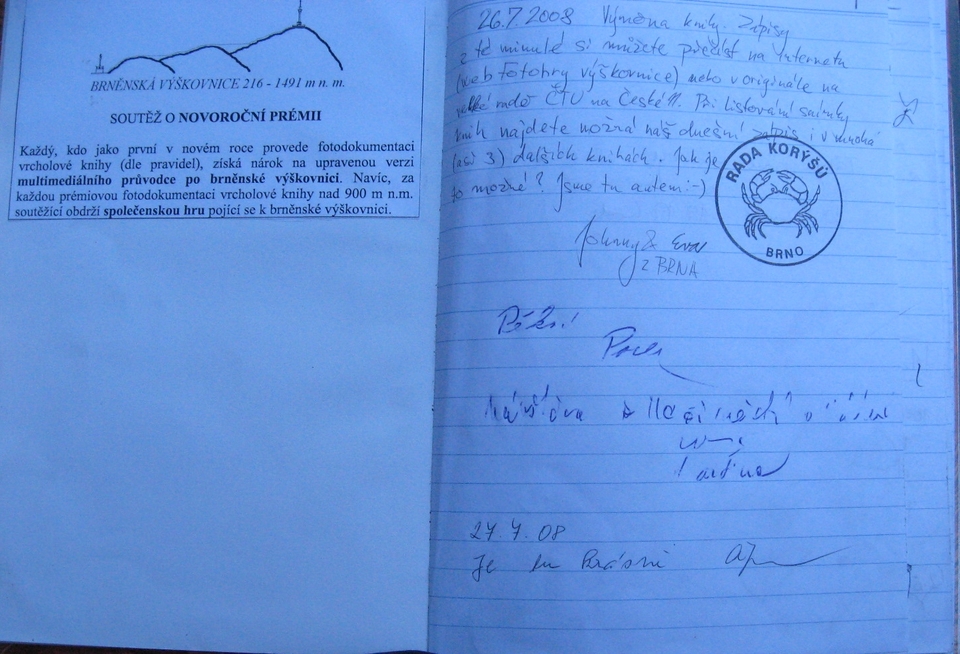 BRNĚNSKÁ VÝŠKOVNICE 216 - 1491 m n. m.
SOUTĚŽ O NOVOROČNÍ PRÉMII
Každý, kdo jako první v novém roce provede fotodokumentaci
vrcholové knihy (dle pravidel), získá nárok na upravenou verzi
multimediálního průvodce po brněnské výškovnici. Navíc, za
každou prémiovou fotodokumentaci vrcholové knihy nad 900 m n.m.
soutěžící obdrží společenskou hru pojící se k brněnské výškovnici.
26.7.2008 Výměna knihy. Zápisy
z té minulé si můžete přečíst na internetu
(web Fotohry výškovnice) nebo v originále na
ČTU na České 11. Při listování
knih najdete možná náš dnešní zápis i v mnoha
(asi 3) dalších knihách. Jak je
to možné? Jsme tu autem :-)
RADA KORÝŠŮ
BRNO
Johnny & Eva
z BRNA
27.7.08
Je tu krásně